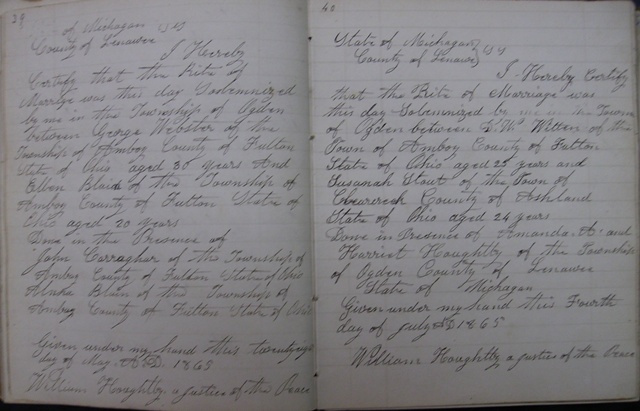 39
of Michagan } SS
County of Lenawee
I Hereby
Certify that the Rite of
Marrige was this day Solemnized
by me in the Township of Ogden
between George Webster of the
Township of Amboy County of Fulton
State of Ohio aged 30 years And
Ellen Blaid of the Township of
Amboy County of Fulton State of
Ohio aged 20 years
Done in the Presence of
John Carraghar of the Township of
Amboy County of Fulton State of Ohio
of the Township of
Amboy County of Fulton State of Ohio
Given under my hand this
day of May A.D. 1865
William Houghtby a justies of the Peace
40
State of Michagan } SS
County of Lenawe
I Hereby Certify
that the Rite of Marriage was
this day Solemnized by me in the Town
of Ogden between of the
Town of Amboy County of Fulton
State of Ohio aged 25 years and
Susanah Stout of the Town of
County of Ashland
State of Ohio aged 24 years
Done in Presence of Amanda A. and
Harriet Houghtby of the Township
of Ogden County of Lenawee
State of Michagan
Given under my hand this Fourth
day of July AD 1865
William Houghtby a justies of the Peace